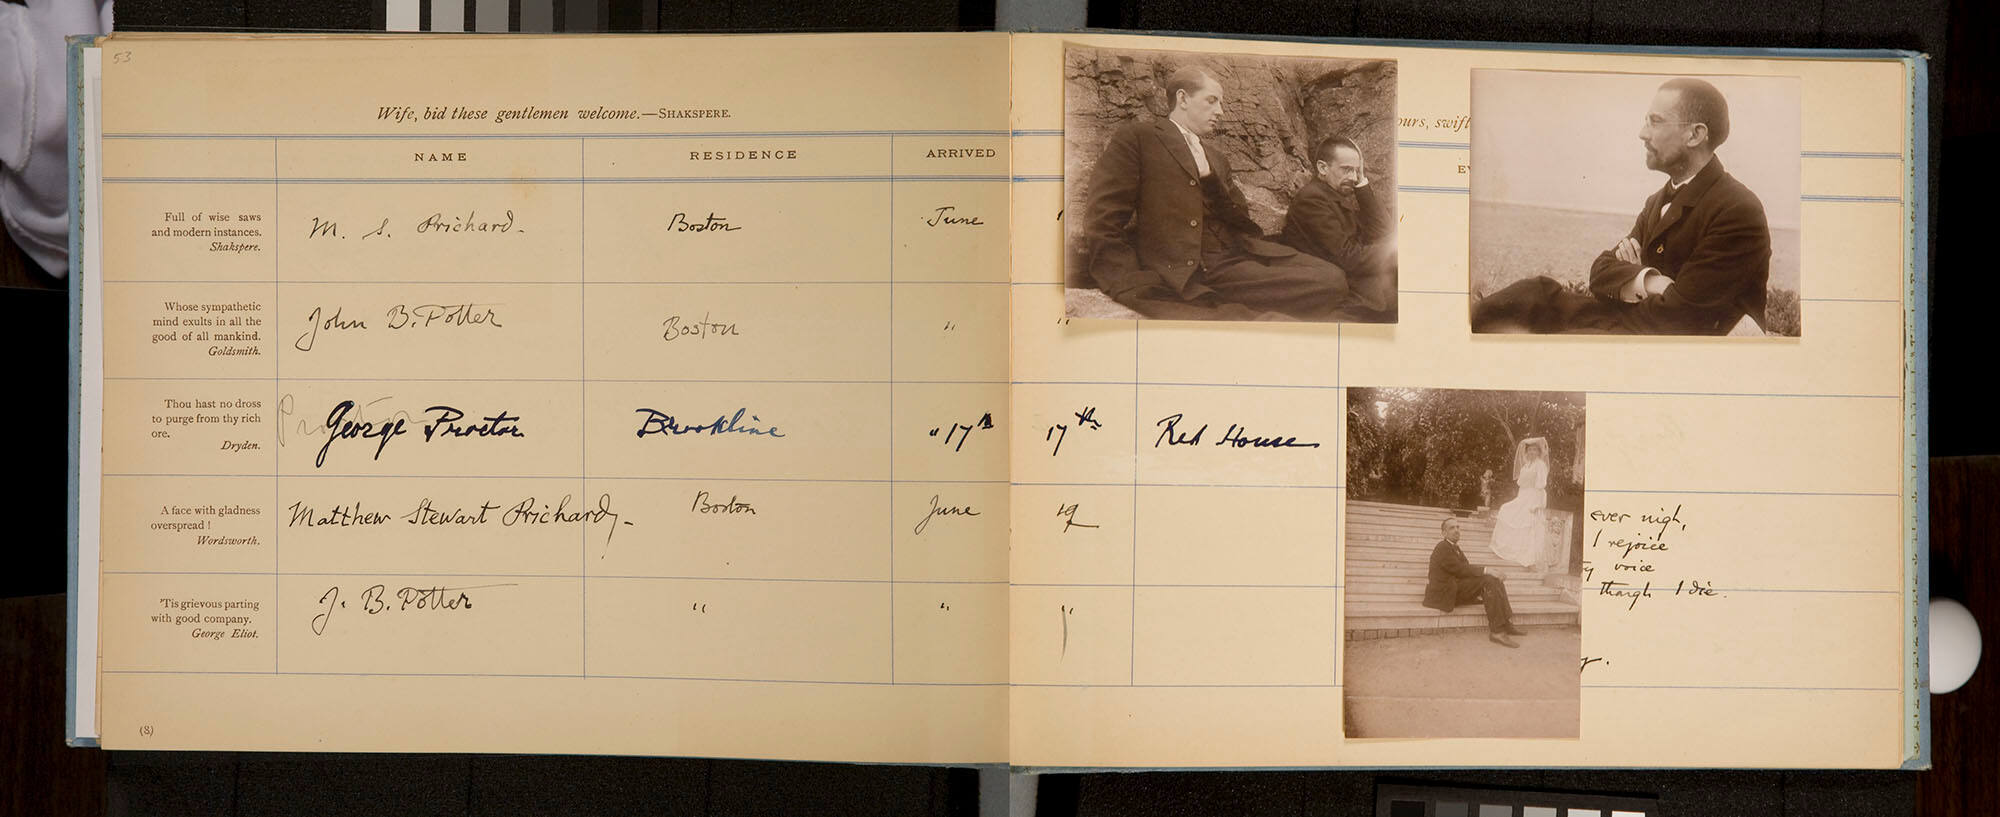 53
Wife, bid these gentlemen welcome.—SHAKSPERE.
ours, swift
NAME RESIDENCE ARRIVED
Full of wise saws
and modern instances.
Shakspere.
M. S. Prichard. Boston June
Whose sympathetic
mind exults in all the
good of all mankind.
Goldsmith.
John B. Potter Boston " "
Thou hast no dross
to purge from thy rich
ore.
Dryden.
Proctor
George Proctor Brookline " 17th 17th Red House
A face with gladness
overspread!
Wordsworth.
Matthew Stewart Prichard - Boston June 19
ever nigh,
I rejoice
voice
though I die.
'Tis grievous parting
with good company.
George Eliot.
J. B. Potter " " "
(8)